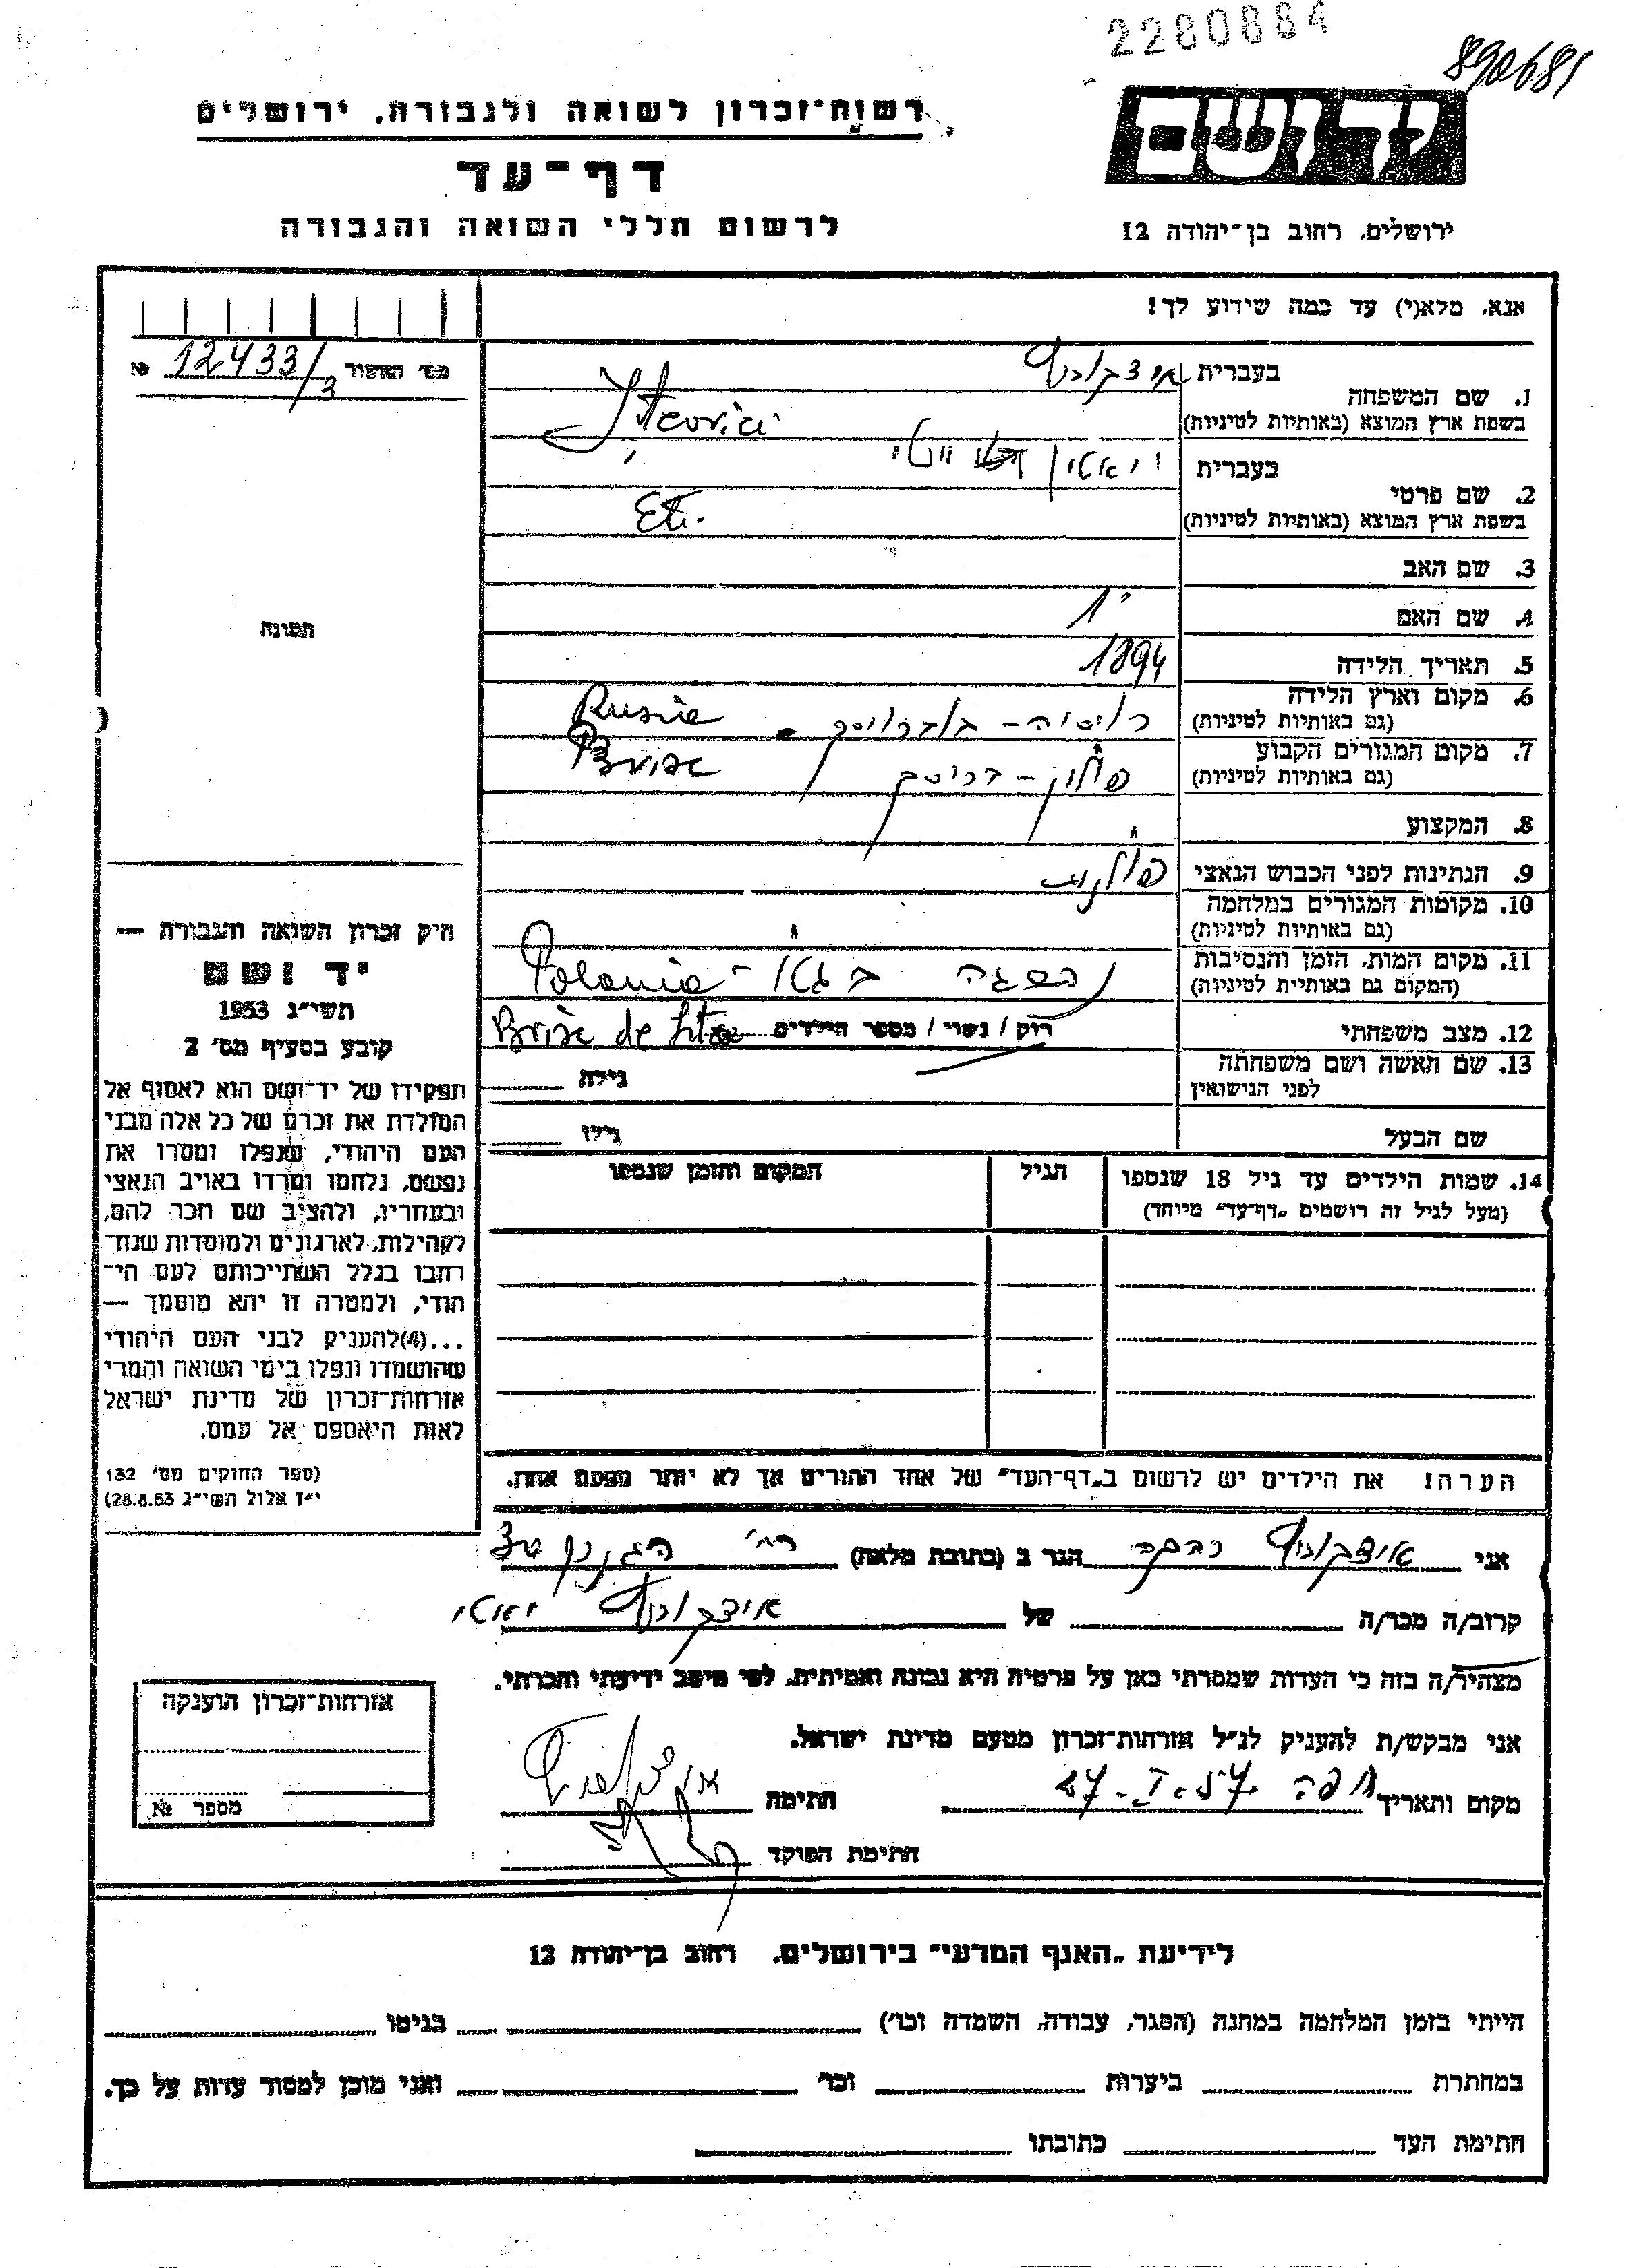 2280884
890681
יד ושם
ירושלים, רחוב בן־יהודה 12
רשות־זכרון לשואה ולגבורה, ירושלים
דף־עד
לרשום חללי השואה והגבורה
אנא, מלא(י) עד כמה שידוע לך!
מס' האשור № 12433/3
1. שם המשפחה
בעברית איצקוביץ
בשפת ארץ המוצא (באותיות לטיניות)
2. שם פרטי
בעברית
בשפת ארץ המוצא (באותיות לטיניות) Eti
3. שם האב
4. שם האם
5. תאריך הלידה 1894
6. מקום וארץ הלידה
(גם באותיות לטיניות) רוסיה - Rusia
7. מקום המגורים הקבוע
(גם באותיות לטיניות) פולין -
8. המקצוע
9. הנתינות לפני הכבוש הנאצי פולנית
10. מקומות המגורים במלחמה
(גם באותיות לטיניות)
11. מקום המות, הזמן והנסיבות
(המקום גם באותיית לטיניות) נספתה בגטו - Polonia
12. מצב משפחתי רווק / נשוי / מספר הילדים Brisc de Lita
13. שם האשה ושם משפחתה
לפני הנישואין גילה
שם הבעל גילו
14. שמות הילדים עד גיל 18 שנספו
(מעל לגיל זה רושמים „דף־עד” מיוחד)
הגיל
המקום והזמן שנספו
הערה! את הילדים יש לרשום ב„דף־העד” של אחד ההורים אך לא יותר מפעם אחת.
תמונה
חיק זכרון השואה והגבורה —
יד ושם
תשי״ג 1953
קובע בסעיף מס' 2
תפקידו של יד־ושם הוא לאסוף אל
המולדת את זכרם של כל אלה מבני
העם היהודי, שנפלו ומסרו את
נפשם, נלחמו ומרדו באויב הנאצי
ובעוזריו, ולהציב שם וזכר להם,
לקהילות, לארגונים ולמוסדות שנח־
רבו בגלל השתייכותם לעם הי־
הודי, ולמטרה זו יהא מוסמך —
...(4)להעניק לבני העם היהודי
שהושמדו ונפלו בימי השואה והמרי
אזרחות־זכרון של מדינת ישראל
לאות היאספם אל עמם.
(ספר החוקים מס' 132
י״ז אלול תשי״ג 28.8.53)
אני איצקוביץ רבקה הגר ב (כתובת מלאה) רח'
קרוב/ה מכר/ה של איצקוביץ
מצהיר/ה בזה כי העדות שמסרתי כאן על פרטיה היא נכונה ואמיתית, לפי מיטב ידיעתי והכרתי.
אני מבקש/ת להעניק לנ״ל אזרחות־זכרון מטעם מדינת ישראל.
מקום ותאריך חיפה חתימה
חתימת הפוקד
אזרחות־זכרון הוענקה
מספר №
לידיעת „האגף המדעי” בירושלים, רחוב בן־יהודה 12
הייתי בזמן המלחמה במחנה (הסגר, עבודה, השמדה וכו') בגיטו
במחתרת ביערות וכו' ואני מוכן למסור עדות על כך.
חתימת העד כתובתו